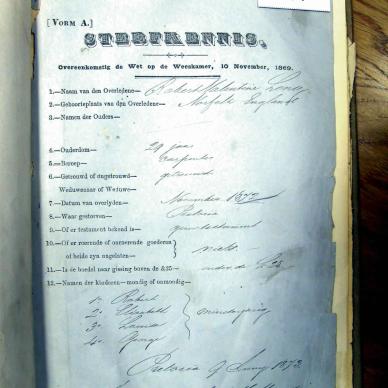 [VORM A.]
STERFKENNIS.
Overeenkomstig de Wet op de Weeskamer, 10 November, 1869.
1.—Naam van den Overledene— Robert Valentine
2.—Geboorteplaats van den Overledene— Norfolk England
3.—Namen der Ouders—
4.—Ouderdom— 29 jaar
5.—Beroep— Carpenter
6.—Getrouwd of ongetrouwd— getrouwd
Weduwenaar of Weduwe—
7.—Datum van overlyden— November 1872
8.—Waar gestorven— Pretoria
9.—Of er testament bekend is— geen testament
10.—Of er roerende of onroerende goederen
of beide zyn nagelaten— niets—
11.—Is de boedel naar gissing boven de £25— onder de £25
12.—Namen der kinderen—mondig of onmondig—
1e Robert
2e Elizabeth
3e Louisa
4e George
minderjarig
Pretoria 9 1873